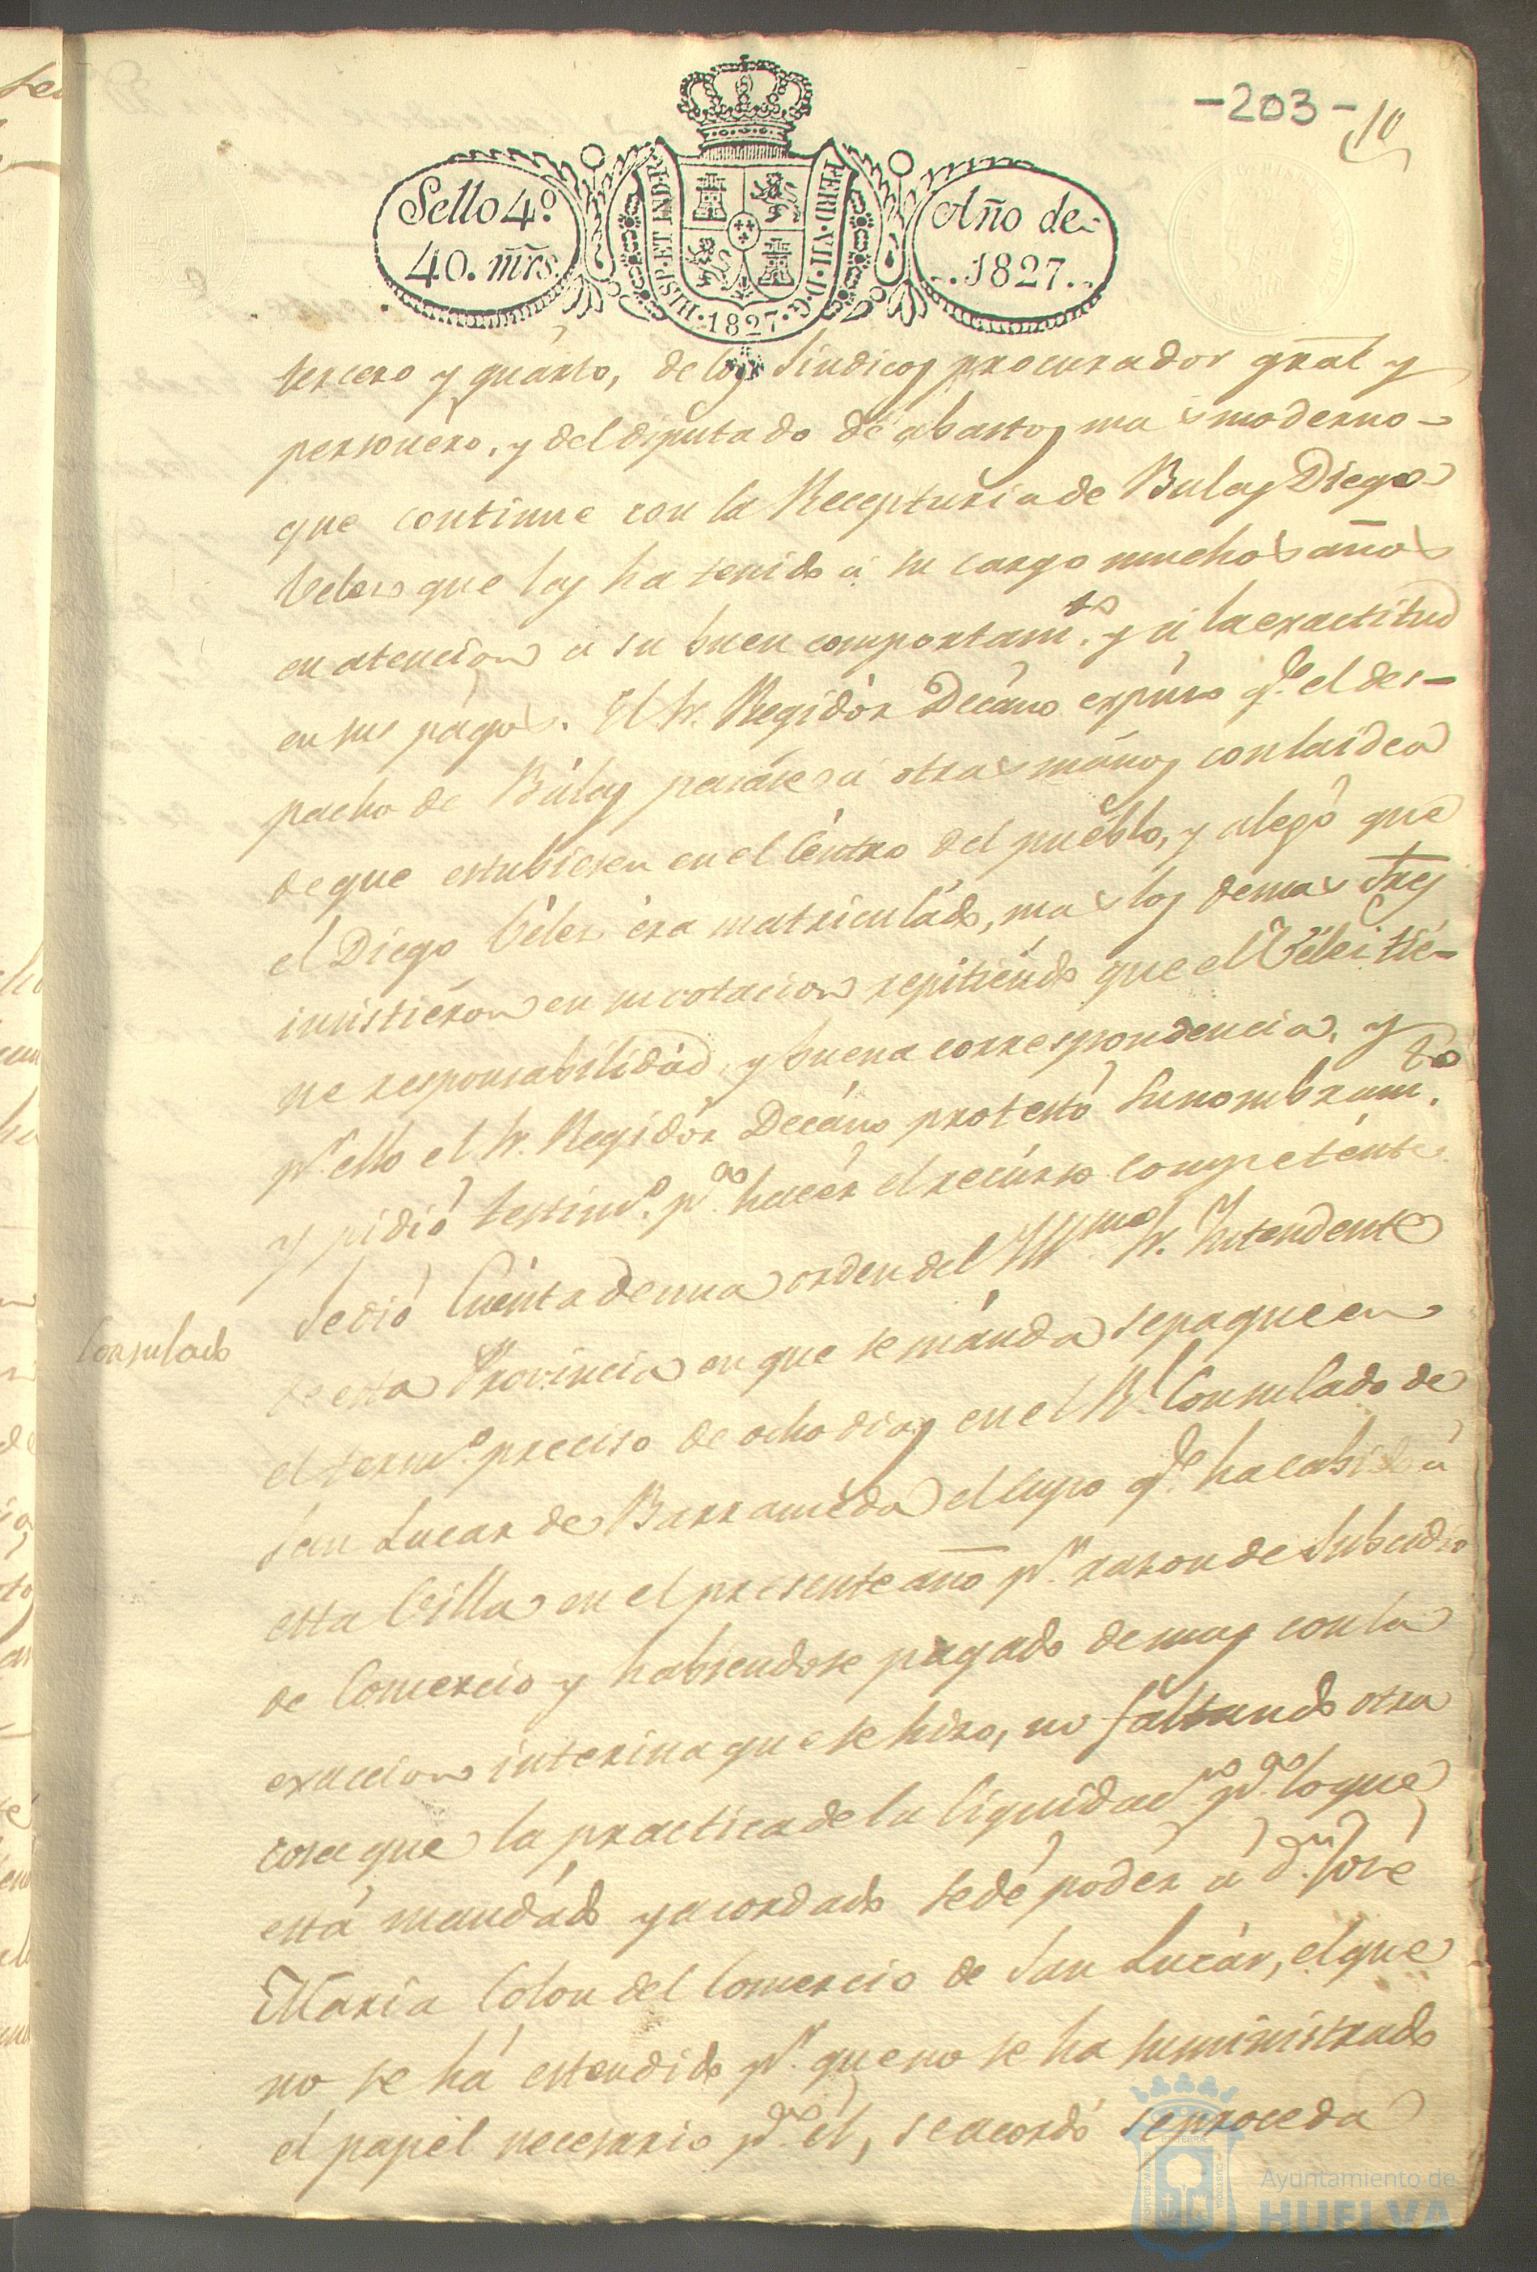 -203-
10
Sello 4º
40. mrs.
HISP. ET IND. R.
FERD. VII. D. G.
1827
Año de
1827.
tercero y quárto, de los Sindicos procurador gral y
personero, y del diputado de abastos mas moderno
que continue con la Recepturia de Bulas Diego
Velez que las ha tenido á su cargo muchos años
en atencion á su buen comportamto. y á la exactitud
en sus págos. El Sr. Regidór Decáno expúso qe. el des-
pacho de Búlas pasáse á otras mános con la idea
de que estubiesen en el Céntro del puéblo, y alegó que
el Diego Vélez éra matriculádo, mas los demas Sres
insistiéron en su votacion repitiéndo que el Vélez tié-
ne responsabilidád, y buena correspondencia, y
pr. ello el Sr. Regidór Decáno protestó su nombramto.
y pidió testimo. pa. hacér el recúrso competénte.
Consulado
Se dió Cuénta de una orden del Yllmo. Sr. Yntendente
de esta Provincia en que se mánda se pague en
el termo. preciso de ocho dias en el Rl. Consulado de
San Lucar de Barraméda el cupo qe. ha cabido á
esta Villa en el presente año pr. razon de Subsidio
de Comercio y habiendose pagado de mas con la
exaccion interina que se hizo, no faltando otra
cosa que la practica de la liquidacn. pa. lo que
está mandádo y acordado se dé podér á Dn. José
María Colon del Comercio de San Lucár, el que
no se há estendido pr. que no se ha suministrado
el papél necesario pa. él, se acordó se proceda
Ayuntamiento de
HUELVA